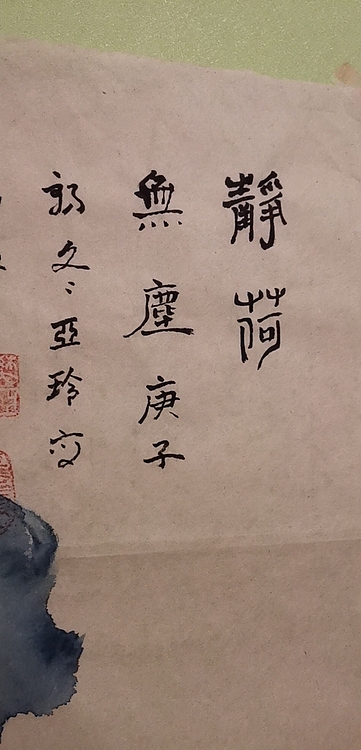 靜荷
無塵庚子
初冬亞玲